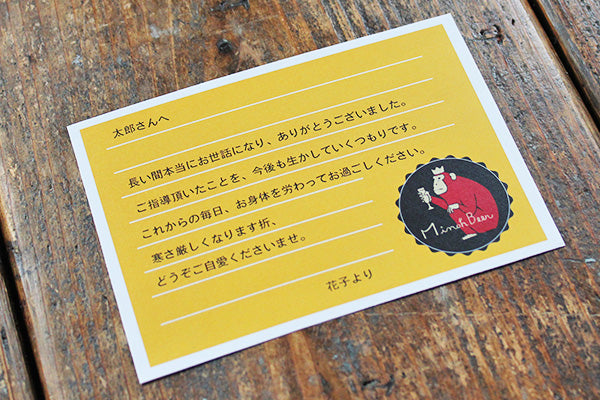 太郎さんへ
長い間本当にお世話になり、ありがとうございました。
ご指導頂いたことを、今後も生かしていくつもりです。
これからの毎日、お身体を労わってお過ごしください。
寒さ厳しくなります折、
どうぞご自愛くださいませ。
花子より
Minoh Beer